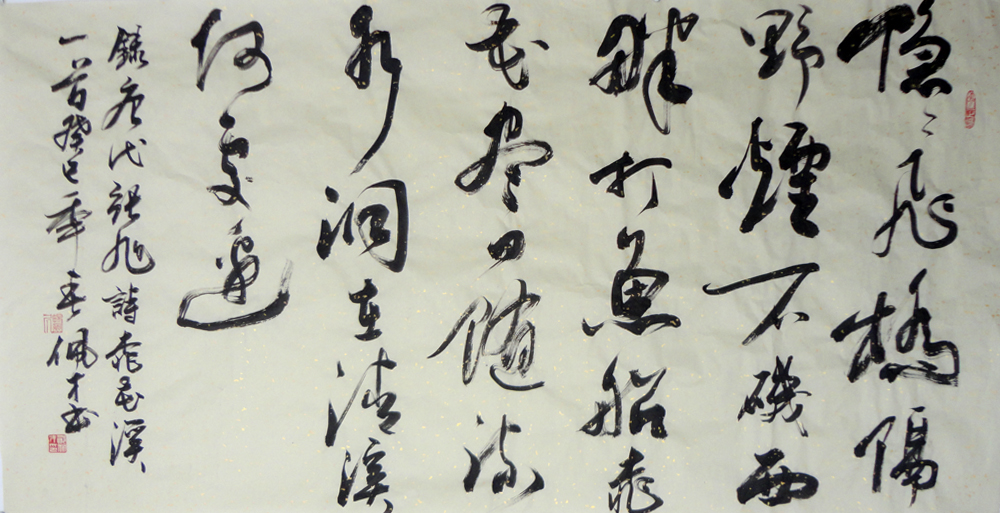 隐〻飛橋隔
野煙石磯西
畔打魚船桃
花尽日随流
水洞在清溪
何處邊
錄唐代張旭詩桃花溪
一首癸巳年春佩才书